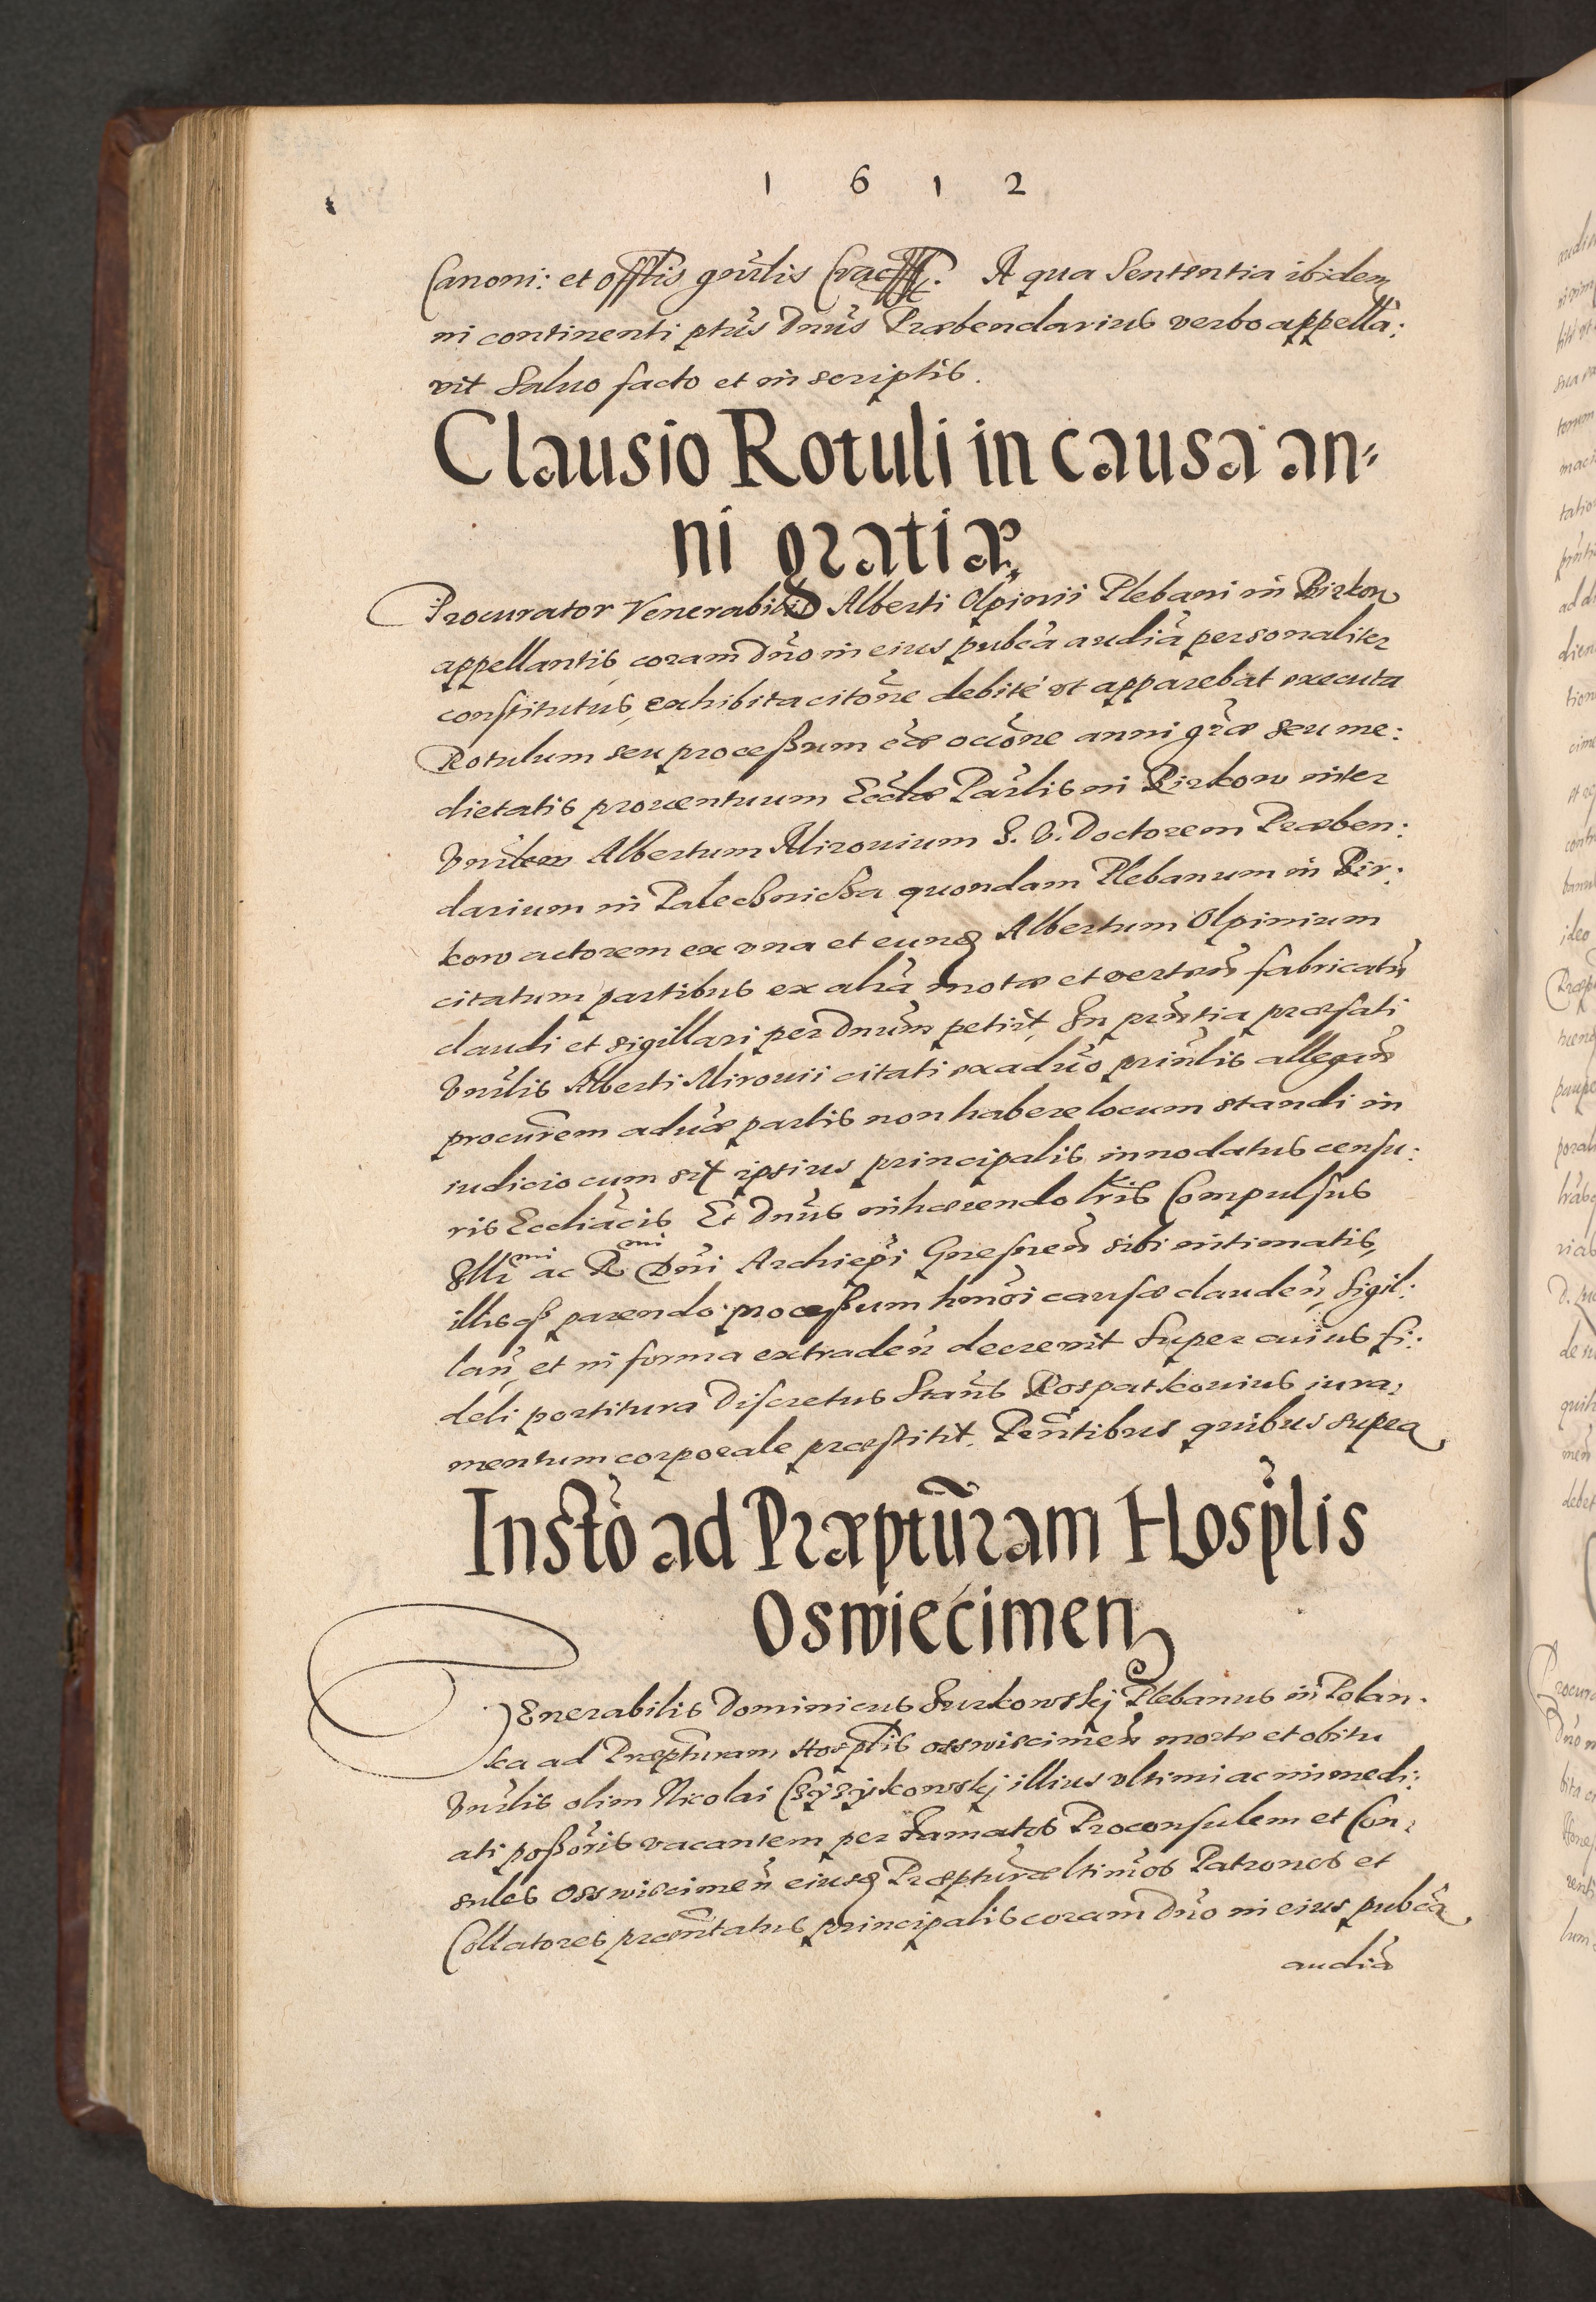 1 6 1 2
Canoni: et offtis gnrlis Crac. A qua Sententia ibidem
in continenti ptus Dnus Præbendarius verbo appella:
vit Saluo facto et in scriptis.
Clausio Rotuli in causa an:
ni gratiæ.
Procurator Venerabilis Alberti Olpinii Plebani in Birkow
appellantis, coram Dno in eius pubca audia personaliter
constitutus, exhibita citone debite ut apparebat executa
Rotulum seu proceßum cæ occone anni græ seu me:
dietatis prouentuum Ecclæ Parlis in Birkow inter
Vnrlem Albertum Mirouium S. V. Doctorem Præben:
darium in quondam Plebanum in Bir:
kow actorem ex una et eundq Albertum Olpinium
citatum partibus ex alia motæ et verten fabricatu
claudi et sigillari per Dnum petiit, In prntia præfati
Vnrlis Alberti Mirouii citati ex aduo prinlis allegan
procurem aduæ partis non habere locum standi in
iudicio cum sit ipsius principalis innodatus censu:
ris Eccliacis Et Dnus inhærendo lris Compulsus
Illmi ac Rmi Dni Archiepi Gnesnen sibi intimatis,
illisq parendo proceßum hmoi causæ clauden, Sigil:
lan, et in forma extraden decreuit Super cuius fi:
deli portitura Discretus Stans Rospatkouius iura:
mentum corporale præstitit. Pentibus quibus supra
Insto ad Præpturam Hosplis
Oswiecimen
Venerabilis Dominicus Furkowskj Plebanus in Polan:
ka ad Præpturam Hosplis osswiecimen morte et obitu
Vnrlis olim Nicolai Czyzykowskj illius vltimi ac immedi:
ati poßoris vacantem per Famatos Proconsulem et Con:
sules Osswiecimen eiusdq Præpturæ ltimos Patronos et
Collatores præntatus principalis coram Dno in eius pubca
audia